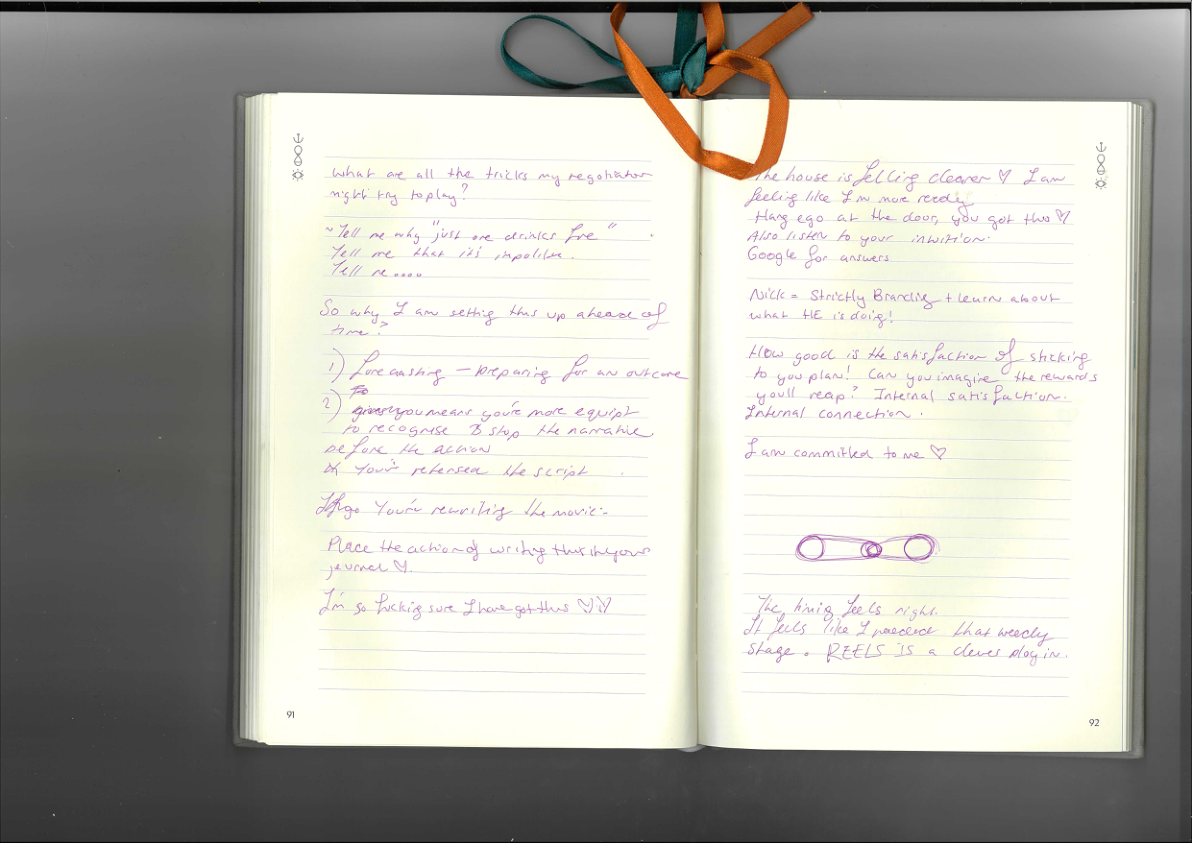 What are all the tricks my negotiator
might try to play?
~ Tell me why "just one drinks fine"
Tell me that it's impolite.
Tell me....
So why I am setting this up ahead of
time?
1) Forecasting – preparing for an outcome
2)
you means you're more equipt
to recognise & stop the narrative
before the action
You've rehersed the script
You're rewriting the movie:-
Place the action of writing this in your
journal ♡.
I'm so fucking sure I have got this ♡♡
91
The house is felling cleaner ♡ I am
feeling like I'm more ready
Hang ego at the door, you got this ♡
Also listen to your intuition.
Google for answers
Nick = Strictly Branding + learn about
what HE is doing!
How good is the satisfaction of sticking
to you plan! Can you imagine the rewards
youll reap? Internal satisfaction.
Internal connection.
I am committed to me ♡
The timing feels right.
It feels like I needed that weedy
stage. REELS IS a clever plug in.
92